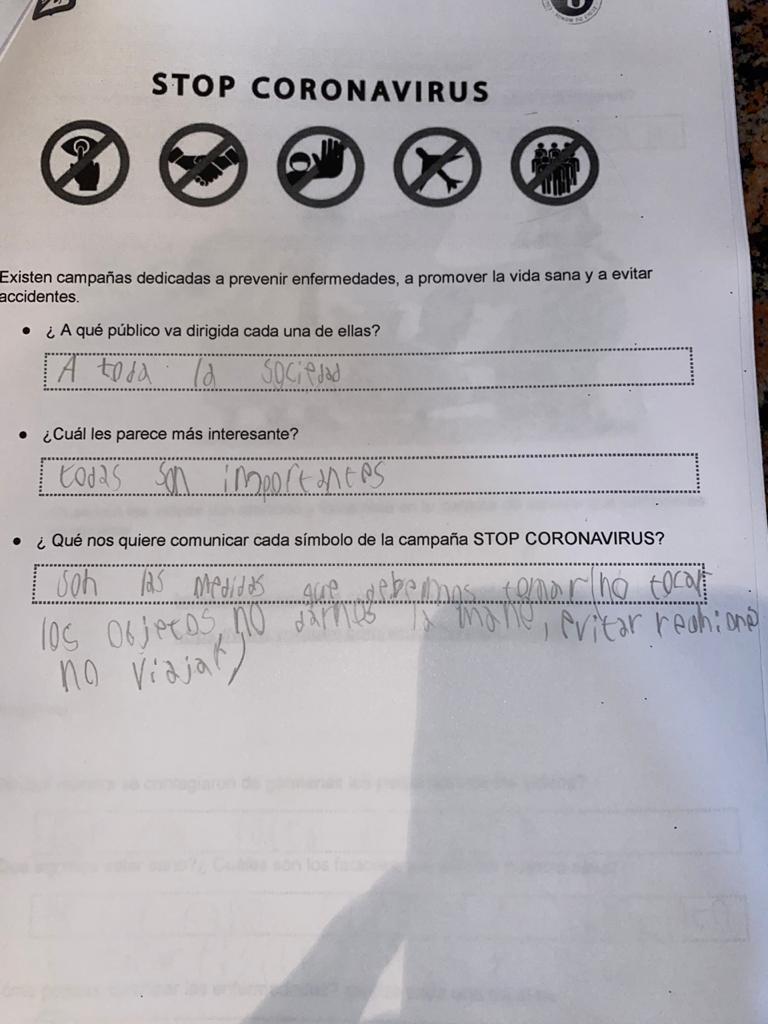 STOP CORONAVIRUS
Existen campañas dedicadas a prevenir enfermedades, a promover la vida sana y a evitar
accidentes.
• ¿ A qué público va dirigida cada una de ellas?
A toda la sociedad
• ¿Cuál les parece más interesante?
todas son importantes
• ¿ Qué nos quiere comunicar cada símbolo de la campaña STOP CORONAVIRUS?
Son las medidas que debemos tomar (no tocar
los objetos, no darnos la mano, evitar reuniones
no viajar)